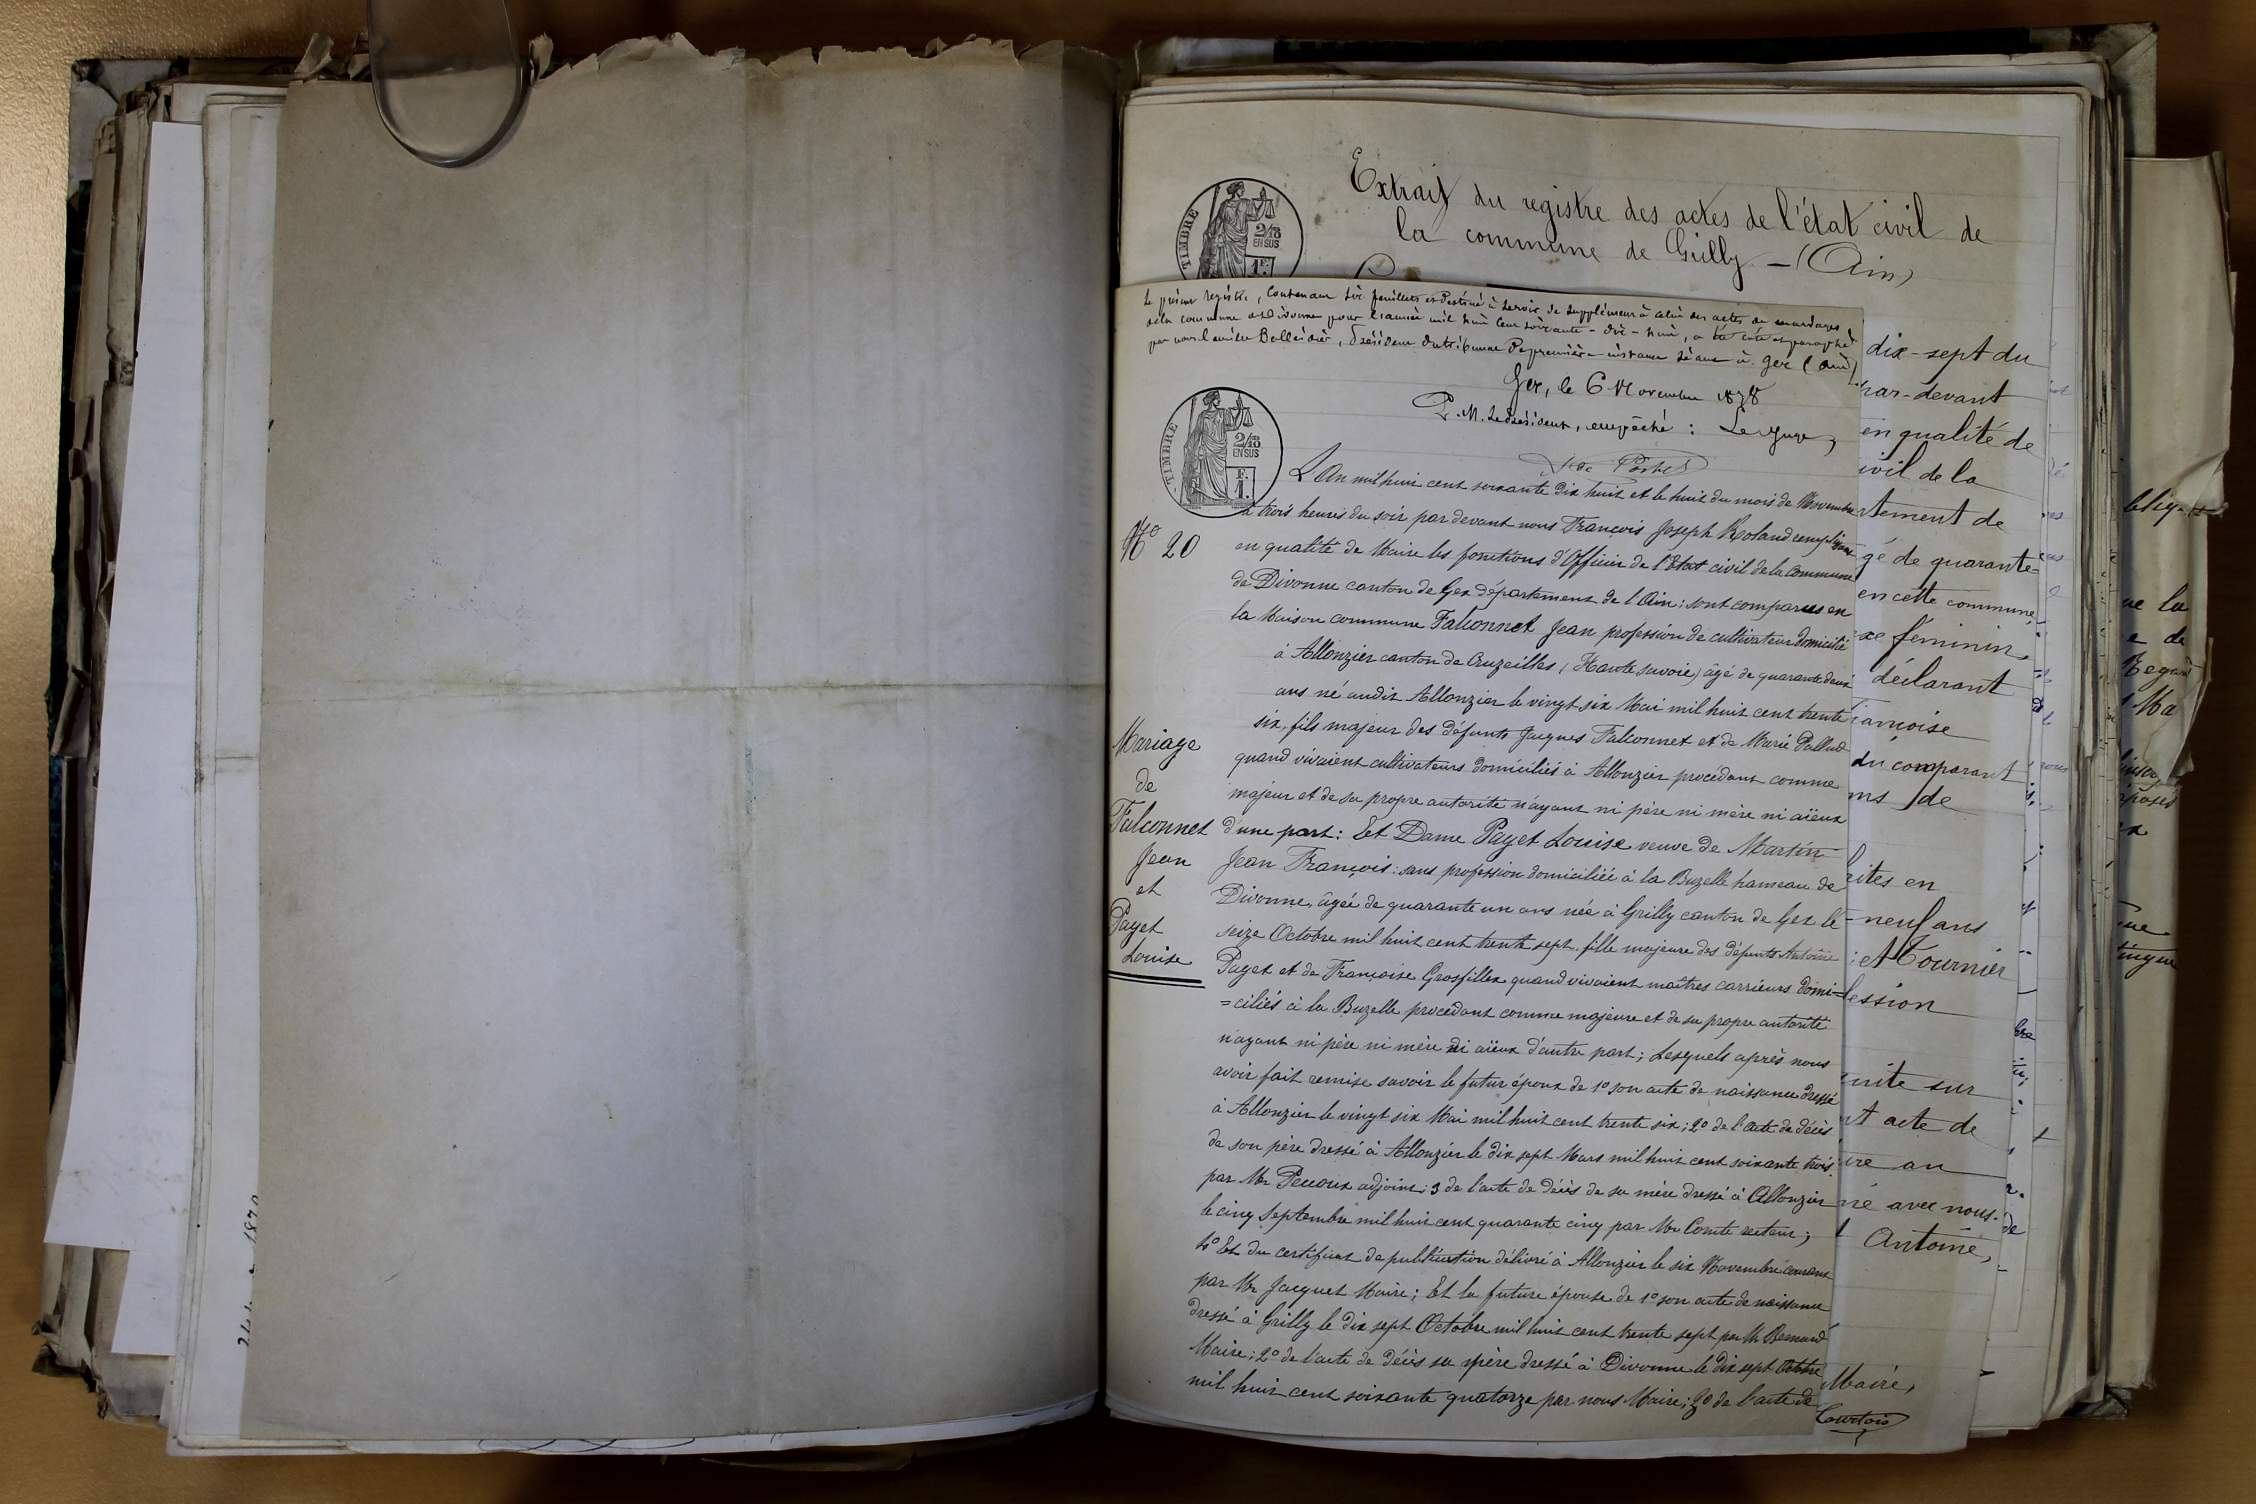 Extrait du registre des actes de l'état civil de
la commune de Grilly - (Ain)
TIMBRE
2/10
EN SUS
1F.
Le présent registre, contenant six feuillets est destiné à servir de supplément à celui des actes de mariages
de la commune de Divonne pour l'année mil huit cent soixante-dix-huit, a été coté et paraphé
par nous Président du tribunal de première instance séant à Gex (Ain)
Gex, le 6 Novembre 1878
P. M. Le Président, empêché : Le juge,
TIMBRE
2/10
EN SUS
F.
1.
L'An mil huit cent soixante dix huit et le huit du mois de Novembre
à trois heures du soir par devant nous François Joseph Roland remplissant
No 20
en qualité de Maire les fonctions d'Officier de l'Etat civil de la commune
de Divonne canton de Gex département de l'Ain : sont comparus en
la Maison commune Falconnet Jean profession de cultivateur domicilié
à Allonzier canton de Cruzeilles (Haute Savoie) âgé de quarante deux
ans né audit Allonzier le vingt six Mai mil huit cent trente
six, fils majeur des défunts Jacques Falconnet et de Marie Pallud
quand vivaient cultivateurs domiciliés à Allonzier procédant comme
majeur et de sa propre autorité n'ayant ni père ni mère ni aïeux
Mariage
de
Falconnet
Jean
et
Payet
Louise
d'une part : Et Dame Payet Louise veuve de Martin
Jean François : sans profession domiciliée à la Buzelle hameau de
Divonne, âgée de quarante un ans née à Grilly canton de Gex le
seize Octobre mil huit cent trente sept, fille majeure des défunts Antoine
Payet et de Françoise Grosfillex quand vivaient maîtres carriers domi=
=ciliés à la Buzelle procédant comme majeure et de sa propre autorité
n'ayant ni père ni mère ni aïeux d'autre part ; Lesquels après nous
avoir fait remise savoir le futur époux de 1o son acte de naissance dressé
à Allonzier le vingt six Mai mil huit cent trente six ; 2o de l'acte de décès
de son père dressé à Allonzier le dix sept Mars mil huit cent soixante trois
par Mr adjoint ; 3 de l'acte de décès de sa mère dressé à Allonzier
le cinq Septembre mil huit cent quarante cinq par Mr Comte recteur ;
4o Et du certificat de publication délivré à Allonzier le six Novembre courant
par Mr Jacquet Maire ; Et la future épouse de 1o son acte de naissance
dressé à Grilly le dix sept Octobre mil huit cent trente sept par Mr
Maire ; 2o de l'acte de décès sa père dressé à Divonne le dix sept Octobre
mil huit cent soixante quatorze par nous Maire ; 3o de l'acte de
dix-sept du
par-devant
en qualité de
ivil de la
rtement de
gé de quarante=
en cette commune,
xe féminin
déclarant
rançoise
du comparant
ns de
rites en
-neuf ans
et Tournier
fession
uite sur
nt acte de
ire au
né avec nous.
Antoine,
Maire,
Courtois
ue la
e de
Ma